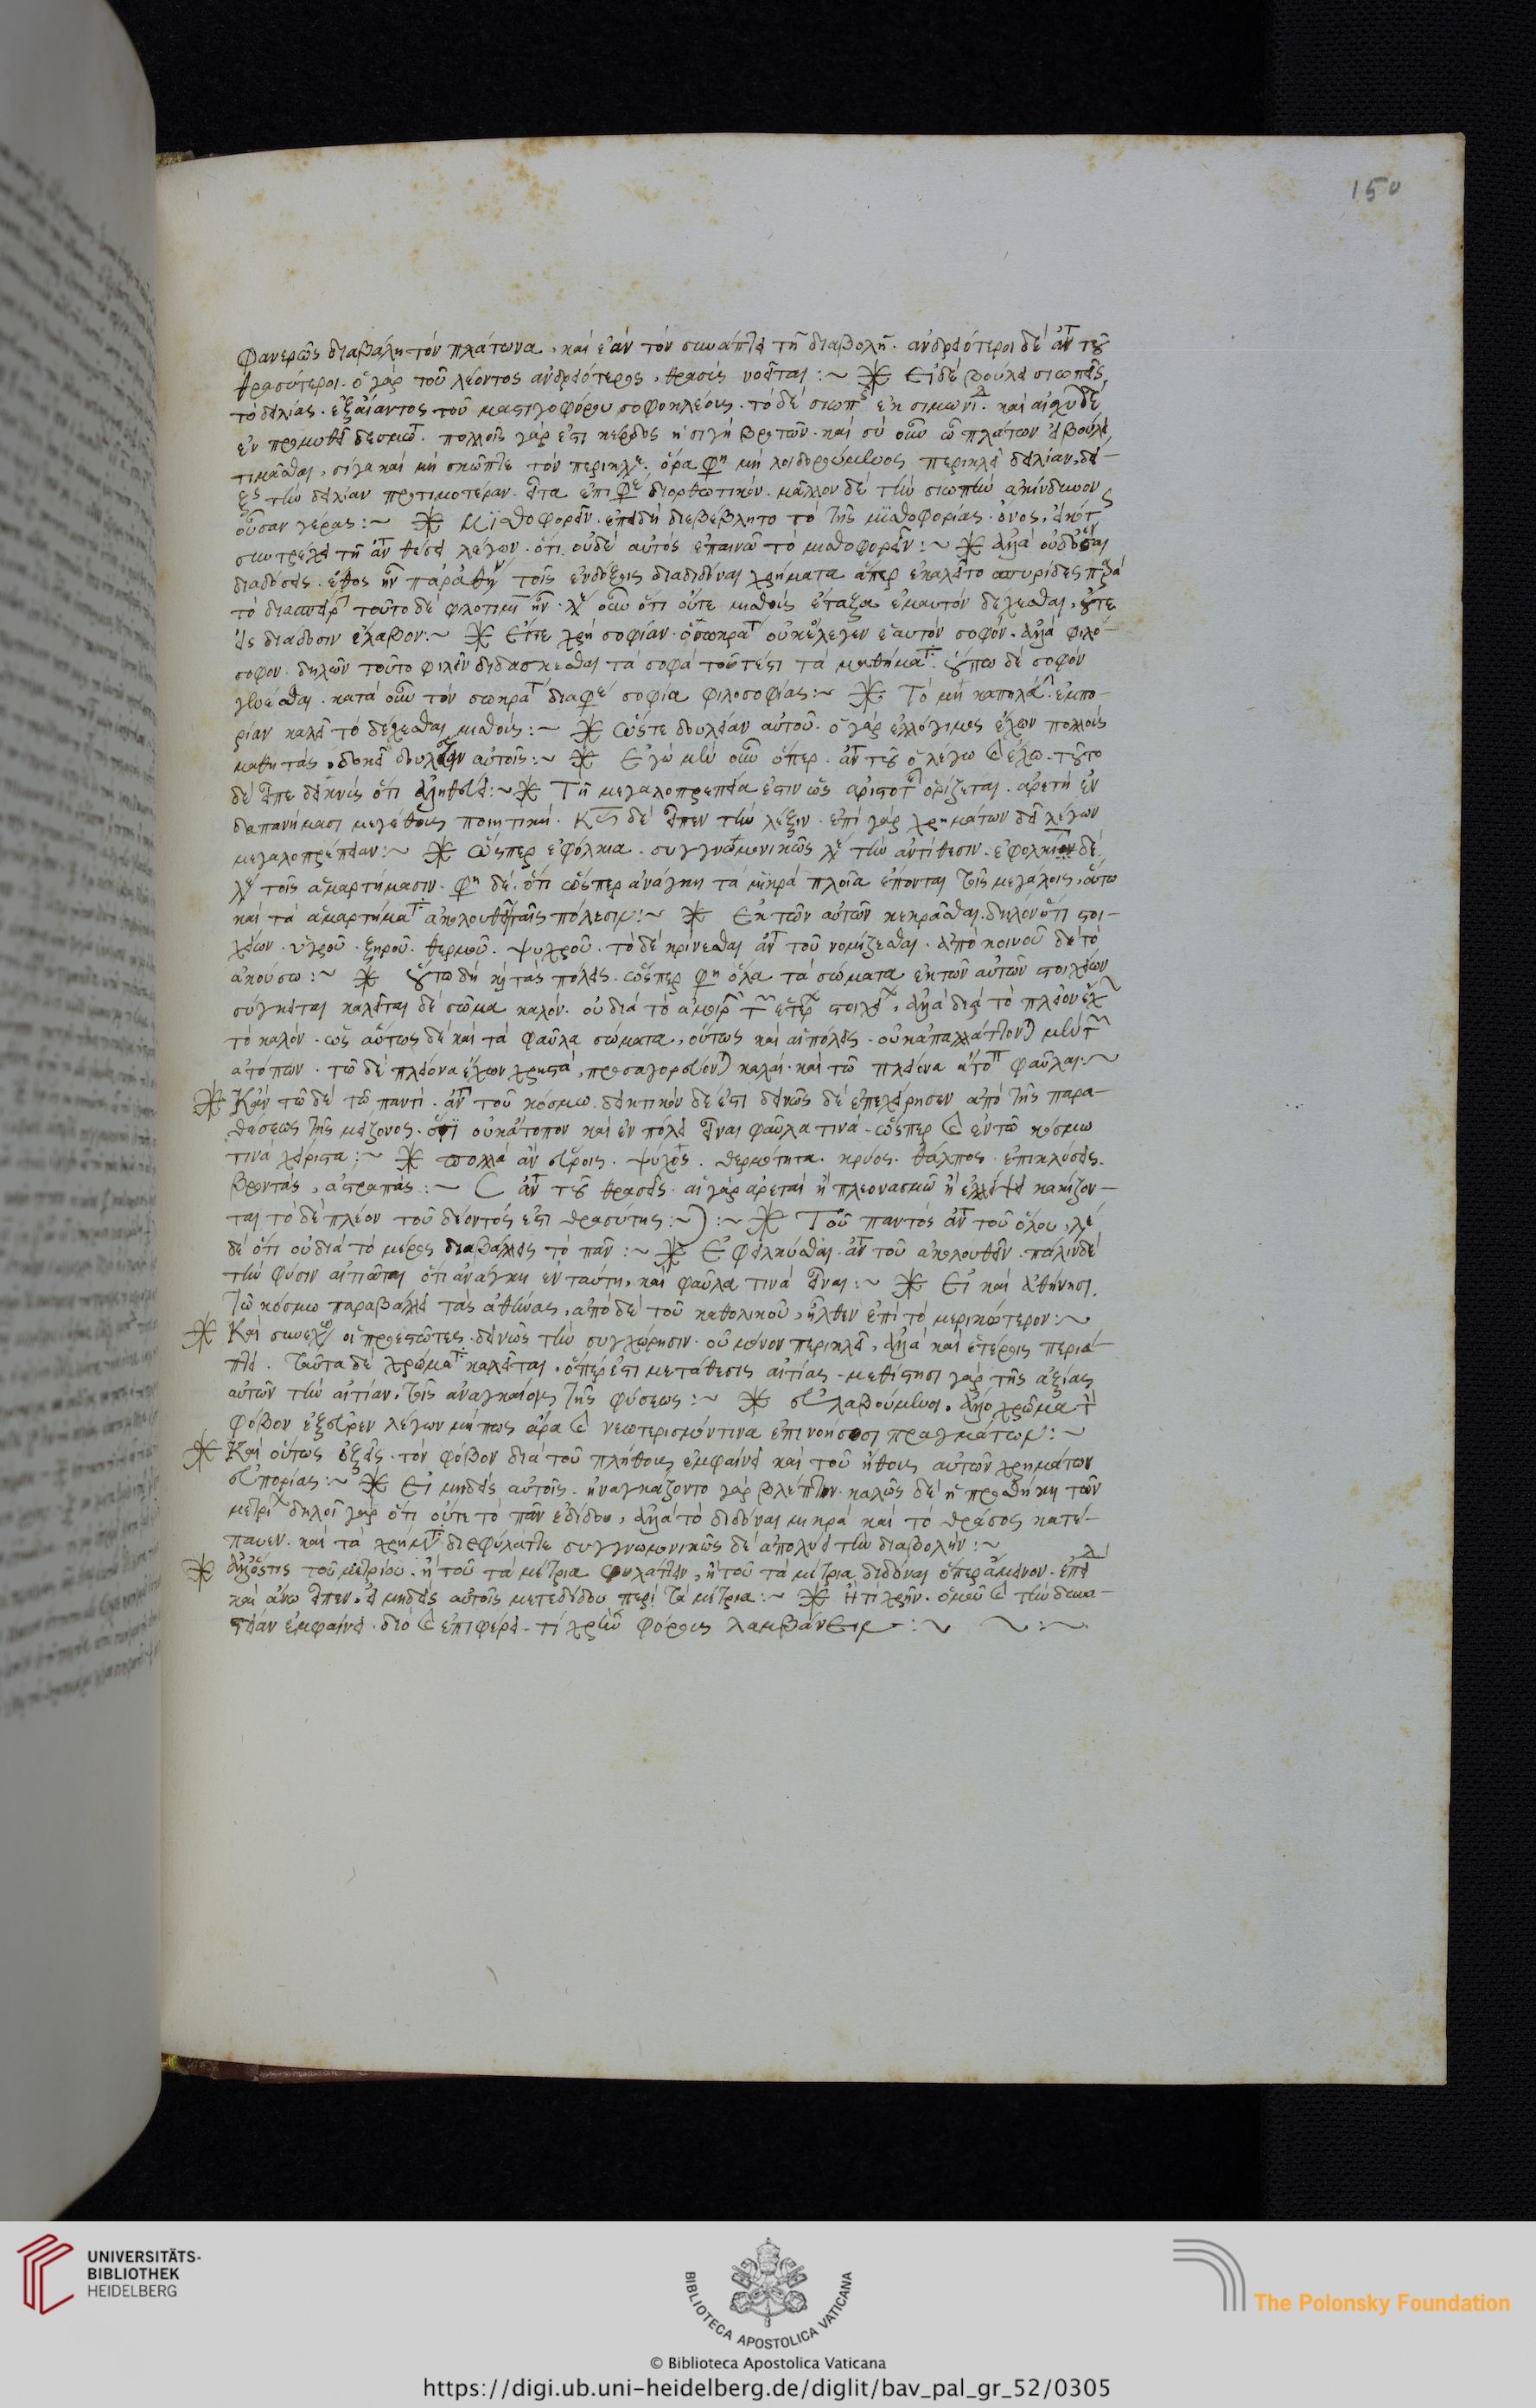 150
φανερῶς διαβάλη τὸν πλάτωνα, καὶ ἐὰν τὸν συνάπτει τῆ διαβολῆ. ἀνδρειότεροι δὲ ἀντ τοῦ
θρασύτεροι. ὁ γὰρ τοῦ λέοντος ἀνδρειότερος, θρασὺς νοεῖται :~ ※ Εἰ δὲ βούλει σιωπῆς
τὸ δειλίας. ἐξ αἴαντος τοῦ μαστιγοφόρου σοφοκλέους. τὸ δὲ σιωπ ἐκ σιμωνί. καὶ αἰσχυ δὲ
ἐν προμηθεῖ δεσμώτ. πολλοῖς γάρ ἐστι κέρδος ἡ σιγὴ βροτῶν. καὶ σὺ οὖν ὦ πλάτων εἰ βούλει
τιμᾶσθαι, σίγα καὶ μὴ σκῶπτε τὸν περικλέ. ὅρα φη μὴ λοιδορούμενος περικλεῖ δειλίαν, δεί-
ξς τὴν δειλίαν προτιμοτέραν. εἶτα ἐπιφέ διορθωτικόν. μᾶλλον δὲ τὴν σιωπὴν ἀκίνδυνον
οὖσαν γέρας :~ ※ Μισθοφορεῖν. ἐπειδὴ διεβέβλητο τὸ τῆς μισθοφορίας. ὄνος, εἰκότ
συντρέχει τῆ ἀντ θέσει λέγων. ὅτι οὐδὲ αὐτὸς ἐπαινῶ τὸ μισθοφορεῖν :~ ※ ἀλλὰ οὐδ
διαδόσεις. ἔθος ἦν παρ ἀθην τοῖς ἐνδόξοις διαδιδόναι χρήματα ἅπερ ἐκαλεῖτο σπυρίδες παρὰ
τὸ διασπείρ τοῦτο δὲ φιλοτιμ ἦν. λέ οὖν ὅτι οὔτε μισθοῖς ἔταξα ἐμαυτὸν δέχεσθαι, οὔτε
εἰς διάδοσιν ἔλαβον :~ ※ Εἴτε χρὴ σοφίαν. ὁ σωκράτ οὐκ ἔλεγεν ἑαυτὸν σοφόν. ἀλλὰ φιλό-
σοφον. δηλῶν τοῦτο φιλεῖν διδάσκεσθαι τὰ σοφὰ τουτέστι τὰ μαθήματ. οὔπω δὲ σοφὸν
γενέσθαι. κατὰ οὖν τὸν σωκράτ διαφέ σοφία φιλοσοφίας :~ ※ Τὸ μὴ καπηλεί. ἐμπο-
ρίαν καλεῖ τὸ δέχεσθαι μισθούς :~ ※ ὥστε δουλείαν αὐτοῦ. ὁ γὰρ ἐλλόγιμος ἔχων πολλοὺς
μαθητὰς, δοκεῖ δουλεύειν αὐτοῖς :~ ※ Ἐγὼ μὲν οὖν ὅπερ. ἀντ τοῦ ὃ λέγω καὶ ἔχω. τοῦτο
δὲ εἶπε δεικνὺς ὅτι ἀληθεύει :~ ※ Τῆ μεγαλοπρεπεία ἐστιν ὡς ἀριστοτ ὁρίζεται. ἀρετὴ ἐν
δαπανήμασι μεγέθους ποιητική. δὲ εἶπεν τὴν λέξιν. ἐπὶ γὰρ χρημάτων δεῖ λέγων
μεγαλοπρέπειαν :~ ※ ὥσπερ ἐφόλκια. συγγνωμονικῶς λέ τὴν ἀντίθεσιν. ἐφόλκιον δὲ
λέ τοῖς ἁμαρτήμασιν. φη δὲ. ὅτι ὥσπερ ἀνάγκη τὰ μικρὰ πλοῖα ἕπονται τοῖς μεγάλοις, οὕτω
καὶ τὰ ἁμαρτήματ ἀκολουθεῖ ταῖς πόλεσιν :~ ※ Ἐκ τῶν αὐτῶν κεκρᾶσθαι. δηλονότι στοι-
χείων. ὑγροῦ. ξηροῦ. θερμοῦ. ψυχροῦ. τὸ δὲ κρίνεσθαι ἀντ τοῦ νομίζεσθαι. ἀπὸ κοινοῦ δὲ τὸ
ἀκούσω :~ ※ οὕτω δὴ καὶ τὰς πόλεις. ὥσπερ φη ὅλα τὰ σώματα ἐκ τῶν αὐτῶν στοιχείων
σύγκειται καλεῖται δὲ σῶμα καλόν. οὐ διὰ τὸ ἀμοιρ τ ἑτέρ στοιχεί, ἀλλὰ διὰ τὸ πλέον ἔχ
τὸ καλόν. ὡσαύτως δὲ καὶ τὰ φαῦλα σώματα, οὕτως καὶ αἱ πόλεις. οὐκ ἀπαλλάττον μὲν τ
ἀτόπων. τῶ δὲ πλείονα ἔχειν χρηστὰ, προσαγορεύον καλαί. καὶ τῶ πλείονα ἄτοπ φαῦλαι :~
※ Κἀν τῶδε τῶ παντί. ἀντ τοῦ κόσμω. δεικτικὸν δέ ἐστι δεινῶς δὲ ἐπεχείρησεν ἀπὸ τῆς παρα-
θέσεως τῆς μείζονος. ὅτι οὐκ ἄτοπον καὶ ἐν πόλει εἶναι φαῦλα τινά. ὥσπερ καὶ ἐν τῶ κόσμω
τινὰ χείριστα :~ ※ πολλὰ ἂν εὕροις. ψύχος. θερμότητα. κρύος. θάλπος. ἐπικλύσεις.
βροντὰς, ἀστραπάς :~ ( ἀντ τοῦ θρασεῖς. αἱ γὰρ ἀρεταὶ ἢ πλεονασμῶ ἢ ἐλλείψει κακίζον-
ται τὸ δὲ πλέον τοῦ δέοντός ἐστι θρασύτης :~) :~ ※ Τοῦ παντὸς ἀντ τοῦ ὅλου, λέ
δὲ ὅτι οὐ διὰ τὸ μέρος διαβάλλεις τὸ πᾶν :~ ※ Ἐφελκύσθαι. ἀντ τοῦ ἀκολουθεῖν. πάλιν δὲ
τὴν φύσιν αἰτιᾶται ὅτι ἀνάγκη ἐν ταύτη, καὶ φαῦλα τινὰ εἶναι :~ ※ Εἰ καὶ ἀθήνησι.
τῶ κόσμω παραβάλλει τὰς ἀθήνας, ἀπὸ δὲ τοῦ καθολικοῦ, ἦλθεν ἐπὶ τὸ μερικώτερον :~
※ Καὶ συνεχ οἱ προεστῶτες. δεινῶς τὴν συγχώρησιν. οὐ μόνον περικλεῖ, ἀλλὰ καὶ ἑτέροις περιά-
πτει. ταῦτα δὲ χρώματ καλεῖται, ὅπερ ἐστι μετάθεσις αἰτίας. μεθίστησι γὰρ τῆς ἀξίας
αὐτῶν τὴν αἰτίαν, τοῖς ἀναγκαίοις τῆς φύσεως :~ ※ εὐλαβούμενοι. ἄλλο χρῶμα τ
φόβον ἐξεῦρεν λέγων μήπως ἄρα καὶ νεωτερισμόν τινα ἐπινοήσωσι πραγμάτων :~
※ Καὶ οὕτως ὀξεῖς. τὸν φόβον διὰ τοῦ πλήθους ἐμφαίνει καὶ τοῦ ἤθους αὐτῶν χρημάτων
εὐπορίας :~ ※ Εἰ μηδεὶς αὐτοῖς. ἠναγκάζοντο γὰρ βλέπειν. καλῶς δὲ ἡ προσθήκη τῶν
μετρί δηλοῖ γὰρ ὅτι οὔτε τὸ πᾶν ἐδίδου, ἀλλὰ τὸ διδόναι μικρὰ καὶ τὸ θράσος κατέ-
παυεν. καὶ τὰ χρήματ διεφύλαττε συγγνωμονικῶς δὲ ἀπολύει τὴν διαβολήν :~
※ ἀλλ' ὅστις τοῦ μετρίου. ἢ τοῦ τὰ μέτρια φυλάττειν, ἢ τοῦ τὰ μέτρια διδόναι ὅπερ ἄμεινον. ἐπεὶ
καὶ ἄνω εἶπεν, εἰ μηδεὶς αὐτοῖς μετεδίδου περὶ τὰ μέτρια :~ ※ Ἢ τί χρῆν. ὁμοῦ καὶ τὴν δυνα-
στείαν ἐμφαίνει. διὸ καὶ ἐπιφέρει. τί χρὴν φόρους λαμβάνειν :~ ~ :~
UNIVERSITÄTS-
BIBLIOTHEK
HEIDELBERG
BIBLIOTECA APOSTOLICA VATICANA
The Polonsky Foundation
© Biblioteca Apostolica Vaticana
https://digi.ub.uni-heidelberg.de/diglit/bav_pal_gr_52/0305